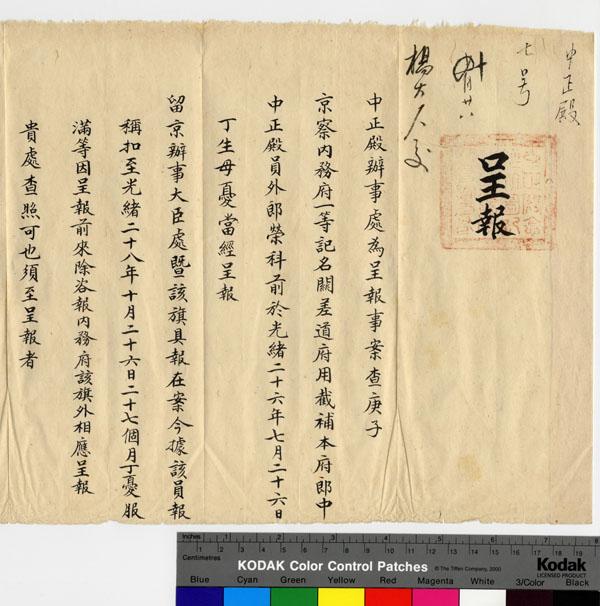 中正殿
七号
呈報
楊大人交
中正殿辦事處為呈報事案查庚子
京察內務府一等記名關差道府用截補本府郎中
中正殿員外郎榮科前於光緒二十六年七月二十六日
丁生母憂當經呈報
留京辦事大臣處暨該旗具報在案今據該員報
稱扣至光緒二十八年十月二十六日二十七個月丁憂服
滿等因呈報前來除咨報內務府該旗外相應呈報
貴處查照可也須至呈報者
Inches 1 2 3 4 5 6 7 8
Centimetres 1 2 3 4 5 6 7 8 9 10 11 12 13 14 15 16 17 18 19
KODAK Color Control Patches © The Tiffen Company, 2000 Kodak
LICENSED PRODUCT
Blue Cyan Green Yellow Red Magenta White 3/Color Black